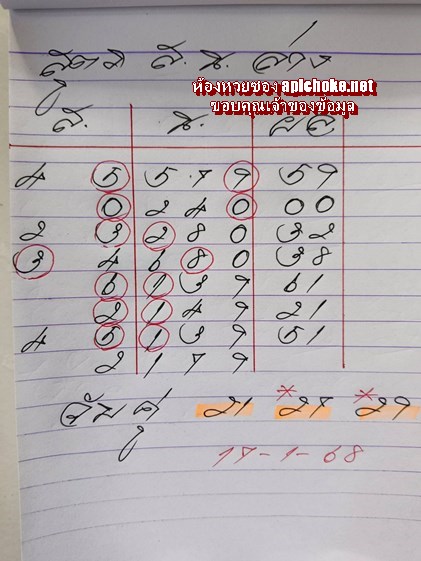 สูตร ส. น. ล่าง
ห้องหวยซอง apichoke.net
ขอบคุณเจ้าของข้อมูล
ส. น. ผล
4 5 5 7 9 59
0 2 4 0 00
2 3 2 8 0 32
3 4 6 8 0 38
6 1 3 9 61
2 1 4 9 21
4 5 1 3 9 51
2 1 7 9
จับคู่ 21 *27 *29
17-1-68